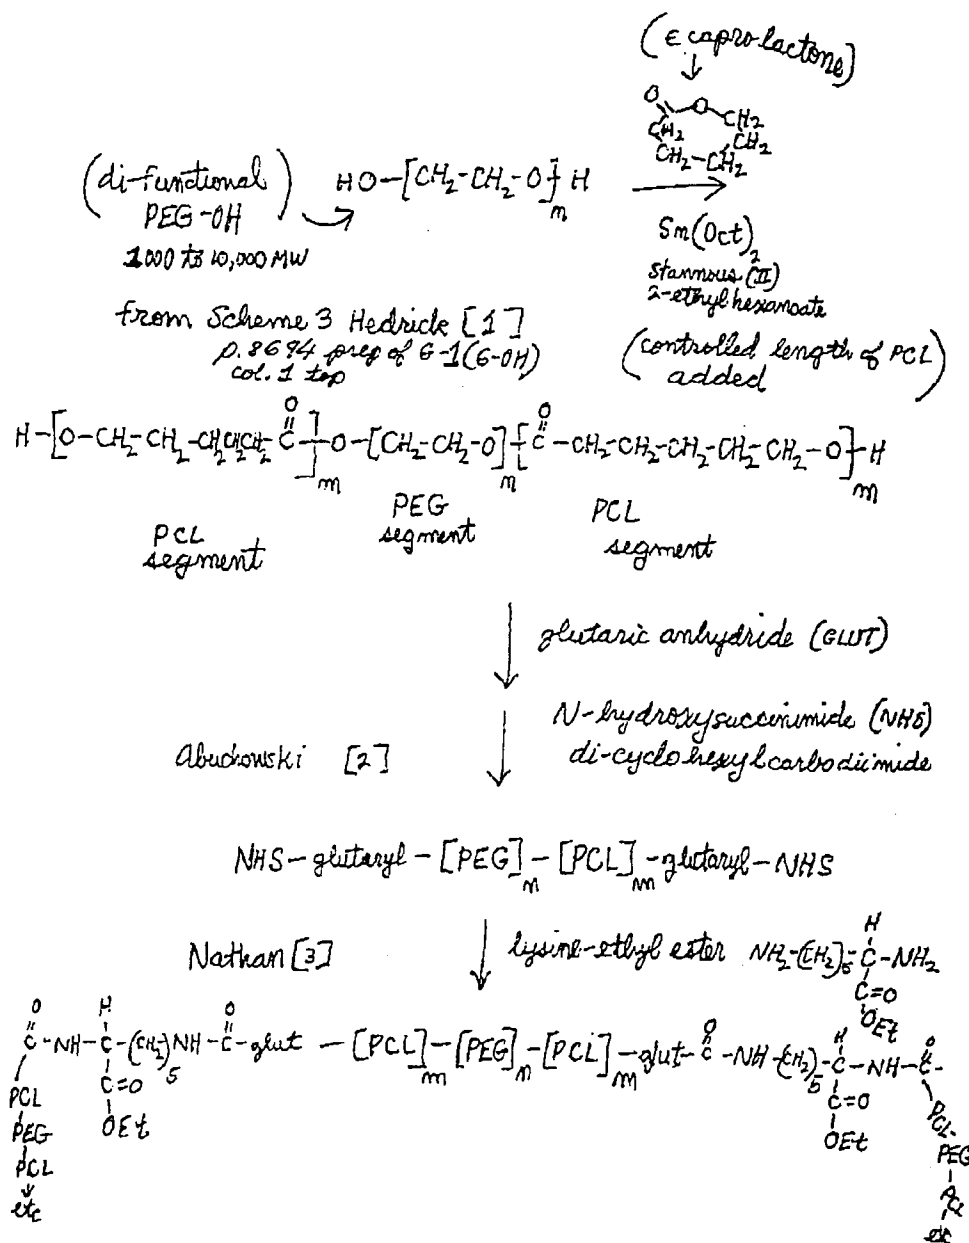 (ε caprolactone)
O O CH2
CH2 CH2
CH2-CH2
(di-functional PEG-OH)
1000 to 10,000 MW
HO-[CH2-CH2-O]m H
Sn(Oct)2
Stannous (II)
2-ethyl hexanoate
from Scheme 3 Hedrick [1]
p. 8694 prep of G-1(G-OH)
col. 1 top
(controlled length of PCL added)
O O
H-[O-CH2-CH2-CH2CH2CH2-C]m-O-[CH2-CH2-O]n-[C-CH2-CH2-CH2-CH2-CH2-O]m-H
PCL segment
PEG segment
PCL segment
glutaric anhydride (GLUT)
N-hydroxysuccinimide (NHS)
di-cyclohexylcarbodiimide
Abuchowski [2]
NHS-glutaryl-[PEG]n-[PCL]m-glutaryl-NHS
Nathan [3]
lysine-ethyl ester NH2-(CH2)5-C-NH2
H
C=O
OEt
O H O O H O
C-NH-C-(CH2)5NH-C-glut-[PCL]m-[PEG]n-[PCL]m-glut-C-NH-(CH2)5-C-NH-C-
C=O
OEt
C=O
OEt
PCL
PEG
PCL
etc
PCL-
PEG
etc